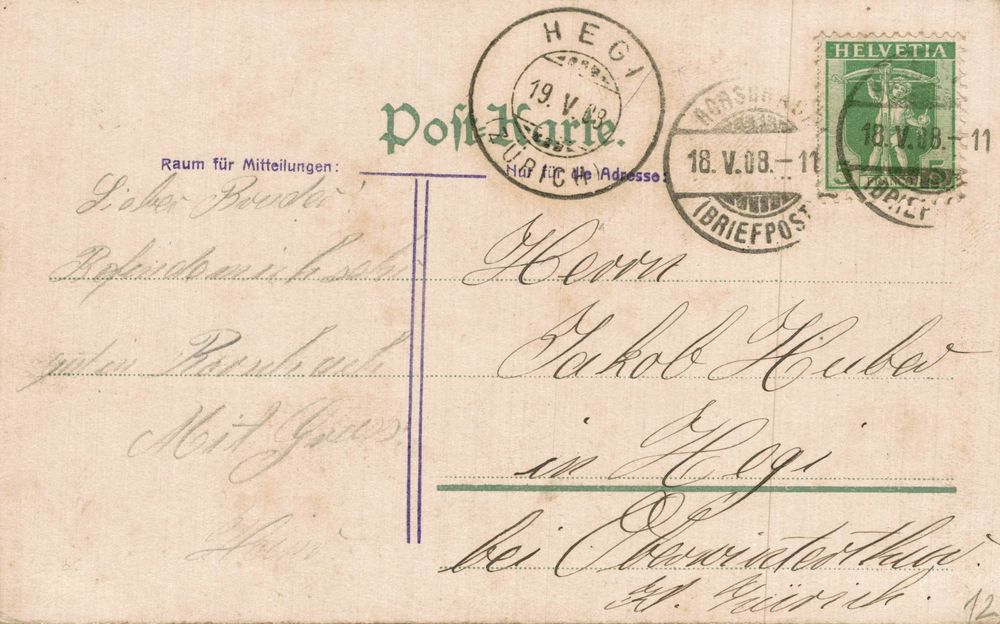 HEGI
19. V. 08
(ZÜRICH)
Post-Karte.
RORSCHACH
18.V.08.-11
(BRIEFPOST
HELVETIA
5
18.V.08.-11
(BRIEF
Raum für Mitteilungen:
Nur für die Adresse:
Lieber Bruder!
Befinde mich sehr
gut in Rorschach
Mit Gruss
Herrn
Jakob Huber
in Hegi
bei Oberwinterthur.
Kt. Zürich.
12